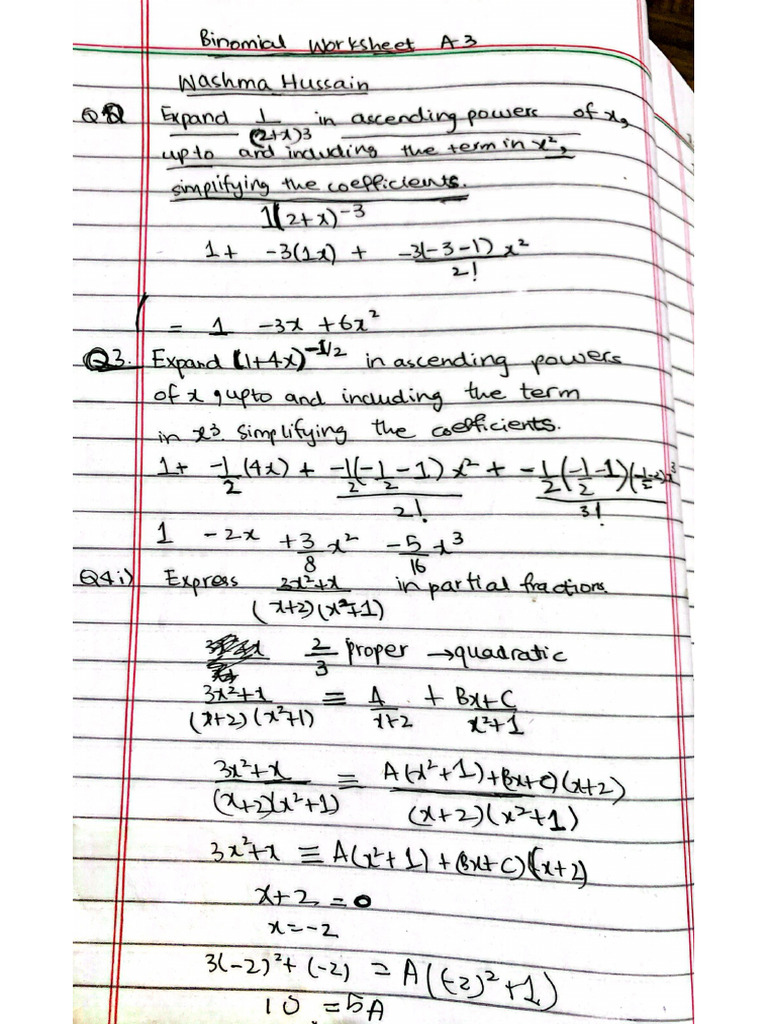 Binomial Worksheet A-3
Washma Hussain
Expand 1/(2+x)3 in ascending powers of x,
upto and including the term in x²,
simplifying the coefficients.
1(2+x)⁻³
1 + -3(1x) + -3(-3-1)/2! x²
= 1 -3x +6x²
Q3. Expand (1+4x)^-1/2 in ascending powers
of x, upto and including the term
in x³. simplifying the coefficients.
1 + -1/2 (4x) + -1/2(-1/2 - 1)/2! x² + -1/2(-1/2-1)(-1/2-2)/3! x³
1 -2x +3/8 x² -5/16 x³
Q4i) Express 3x²+x/(x+2)(x²+1) in partial fractions.
2/3 proper → quadratic
3x²+x/(x+2)(x²+1) ≡ A/x+2 + Bx+C/x²+1
3x²+x/(x+2)(x²+1) ≡ A(x²+1)+(Bx+C)(x+2)/(x+2)(x²+1)
3x²+x ≡ A(x²+1)+(Bx+C)(x+2)
x+2 = 0
x = -2
3(-2)²+(-2) = A((-2)²+1)
10 = 5A